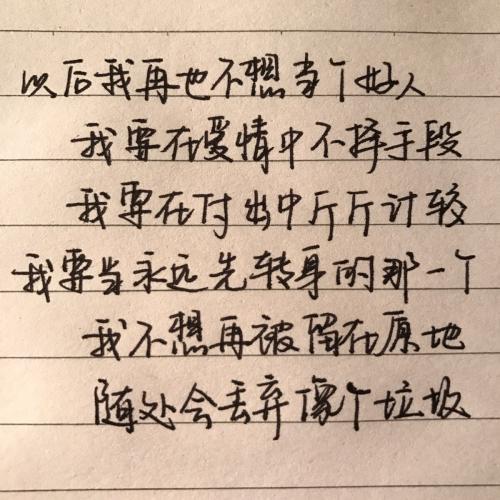 以后我再也不想当个好人
我要在爱情中不择手段
我要在付出中斤斤计较
我要当永远先转身的那一个
我不想再被留在原地
随处会丢弃像个垃圾